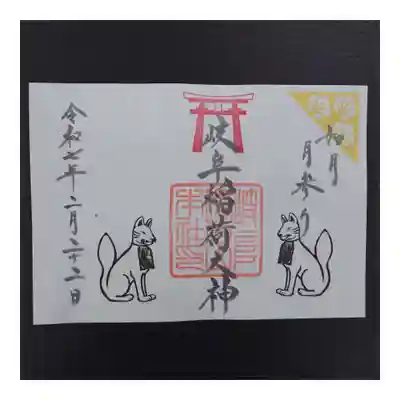 如月
月参り
岐阜稲荷大神
令和七年二月二十二日